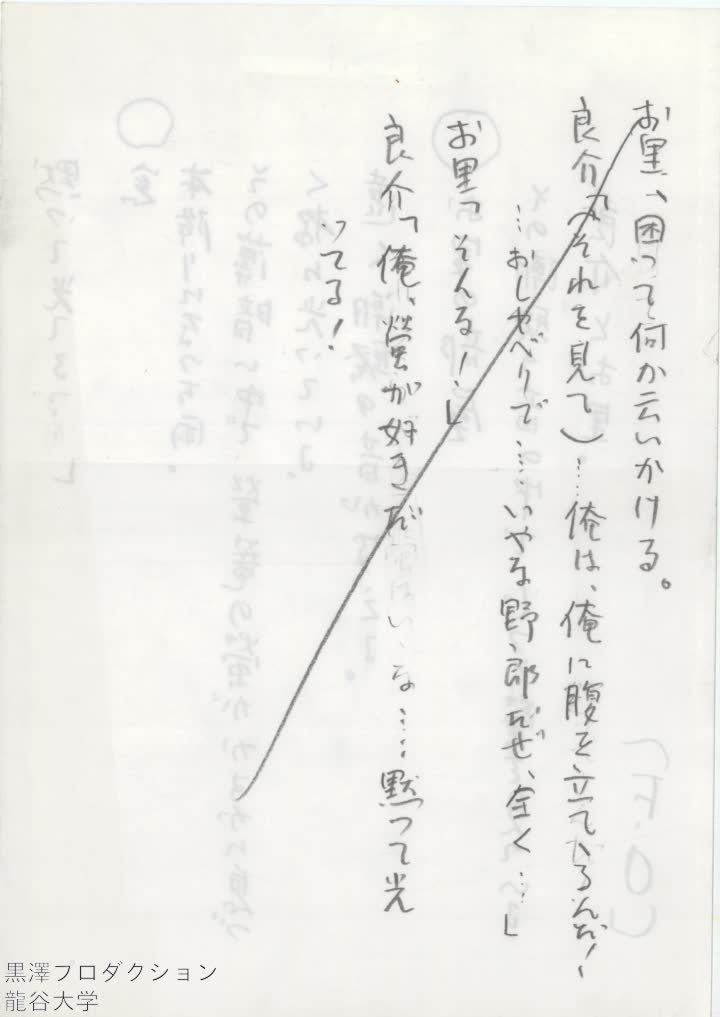 お里、困って何か云いかける。
良介「(それを見て)…俺は、俺に腹を立てゝるんだ!
…おしゃべりで……いやな野郎だぜ、全く…」
お里「そんな!」
良介「俺、螢が好きだ
はいゝな……黙って光
ってる!
黒澤プロダクション
龍谷大学